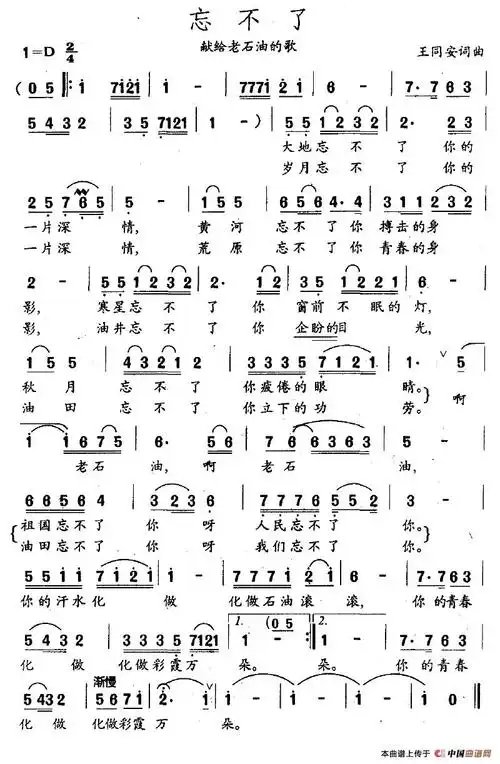 忘不了
献给老石油的歌
1=D 2/4
王同安词曲
(0 5 ‖: i 7121 | 7771 2 1 | 6 - | 7· 7 6 3 |
5 4 3 2 | 3 5 7121 | 1 - ) | 5 5 1 2 3 2 | 2· 2 3 |
大地忘不了 你的
岁月忘不了 你的
2 5 7 6 5 | 5 - | 1 5 5 | 2 5 6 5 4· 4 | 3 1 1 2 3 2 |
一片深情, 黄河 忘不了你 搏击的身
一片深情, 荒原 忘不了你 青春的身
2 - | 5 5 1 2 3 2 | 2· 2 | 3 5 1 2 2 1 | 6 - |
影, 寒星忘不了 你 窗前不眠的灯,
影, 油井忘不了 你 企盼的目光,
1 5 5 | 5 4 3 2 1 2 | 3 3 3 5 7 1 2 1 | 1 - | 5
秋月 忘不了 你疲倦的眼 睛。 啊
油田 忘不了 你立下的功 劳。
1 1 6 7 5 | 6· 5 | 7 6 6 3 6 3 | 5 - |
老石油, 啊 老石油,
6 6 5 6 4 | 3 2 3 6 | 7 7 7 6 5 5 2 | 2 - |
祖国忘不了 你呀 人民忘不了 你。
油田忘不了 你呀 我们忘不了 你。
5 5 1 1 7 1 2 1 | 7 7 7 1 2 1 | 6 - | 7· 7 6 3 |
你的汗水化 做 化做石油滚 滚, 你的青春
1. (0 5 2.
5 4 3 2 | 3 3 3 5 7121 | 1 - :‖ 1 - | 7· 7 6 3 |
化做 化做彩霞万 朵。 朵。 你的青春
渐慢
5 4 3 2 | 5 6 7 1 | 2· 1 | 1 - | 1 - | 1 0 ‖
化做 化做彩霞万 朵。
本曲谱上传于 中国曲谱网